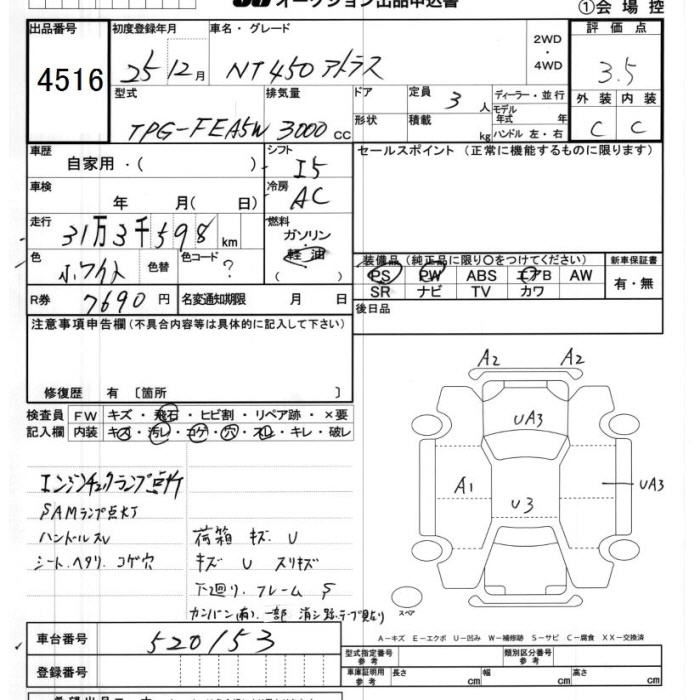 オークション出品申込書
①会場控
出品番号 4516
初度登録年月 25 12月
車名・グレード NT450 アトラス
2WD・4WD
評価点 3.5
外装 C 内装 C
型式 TPG-FEA5W
排気量 3000 cc
ドア
定員 3 人
ディーラー・並行
モデル年式 年
形状
積載 kg
ハンドル 左・右
車歴 自家用・( )
シフト I5
セールスポイント (正常に機能するものに限ります)
車検 年 月( 日)
冷房 AC
走行 31万3千598 km
燃料 ガソリン・軽油 ( )
色 ホワイト 色替 色コード ?
装備品 (純正品に限り○をつけてください)
新車保証書 有・無
PS PW ABS エアB AW
SR ナビ TV カワ
R券 7690 円 名変通知期限 月 日
後日品
注意事項申告欄 (不具合内容等は具体的に記入して下さい)
修復歴 有 〔箇所 〕
検査員記入欄
FW キズ・飛石・ヒビ割・リペア跡・×要
内装 キズ・汚レ・コゲ・穴・スレ・キレ・破レ
A2 A2
UA3
A1 U3 UA3
エンジンチェックランプ点灯
SAMランプ点灯
ハンドルスレ
シート.ヘタリ コゲ穴
荷箱 キズ. U
キズ U スリキズ
下廻り.フレーム S
カンバン(有).一部 消シ跡.テープ貼有
スペア
A－キズ E－エクボ U－凹み W－補修跡 S－サビ C－腐食 XX－交換済
車台番号 520153
登録番号
型式指定番号 参考
類別区分番号 参考
車庫証明用 参考 長さ cm 幅 cm 高さ cm